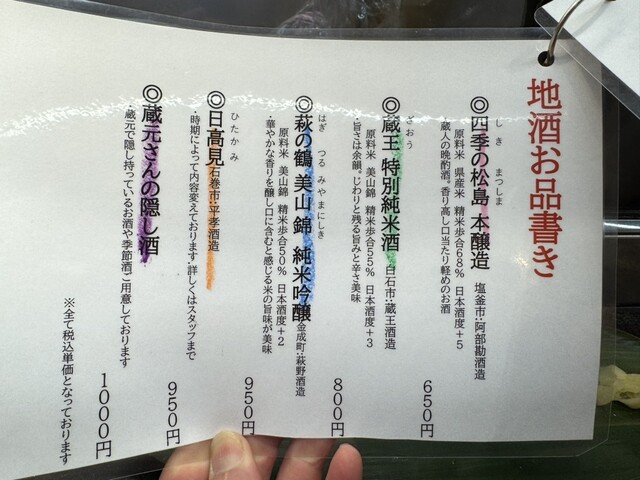 地酒お品書き
しき まつしま
◎四季の松島 本醸造 塩釜市:阿部勘酒造
原料米 県産米 精米歩合68% 日本酒度+5
・蔵人の晩酌酒。香り高し口当たり軽めのお酒
650円
ざおう
◎蔵王 特別純米酒 白石市:蔵王酒造
原料米 美山錦 精米歩合55% 日本酒度+3
・旨さは余韻。じわりと残る旨みと辛さ美味
800円
はぎ つる みやまにしき
◎萩の鶴 美山錦 純米吟醸 金成町:萩野酒造
原料米 美山錦 精米歩合50% 日本酒度+2
・華やかな香りを醸し口に含むと感じる米の旨味が美味
950円
ひたかみ
◎日高見 石巻市:平孝酒造
・時期によって内容変えております 詳しくはスタッフまで
950円
◎蔵元さんの隠し酒
・蔵元で隠し持っているお酒や季節酒ご用意しております
1000円
※全て税込単価となっております